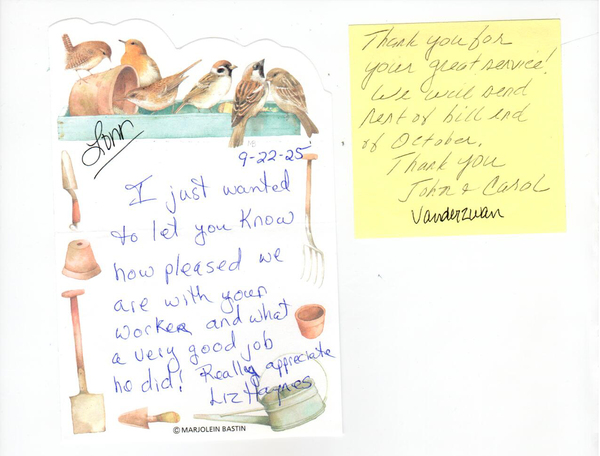 Lonn
9-22-25
I just wanted
to let you know
how pleased we
are with your
worker and what
a very good job
he did! Really appreciate
Liz Haynes
© MARJOLEIN BASTIN
Thank you for
your great service!
We will send
rest of bill end
of October.
Thank you
John & Carol
Vanderzwan